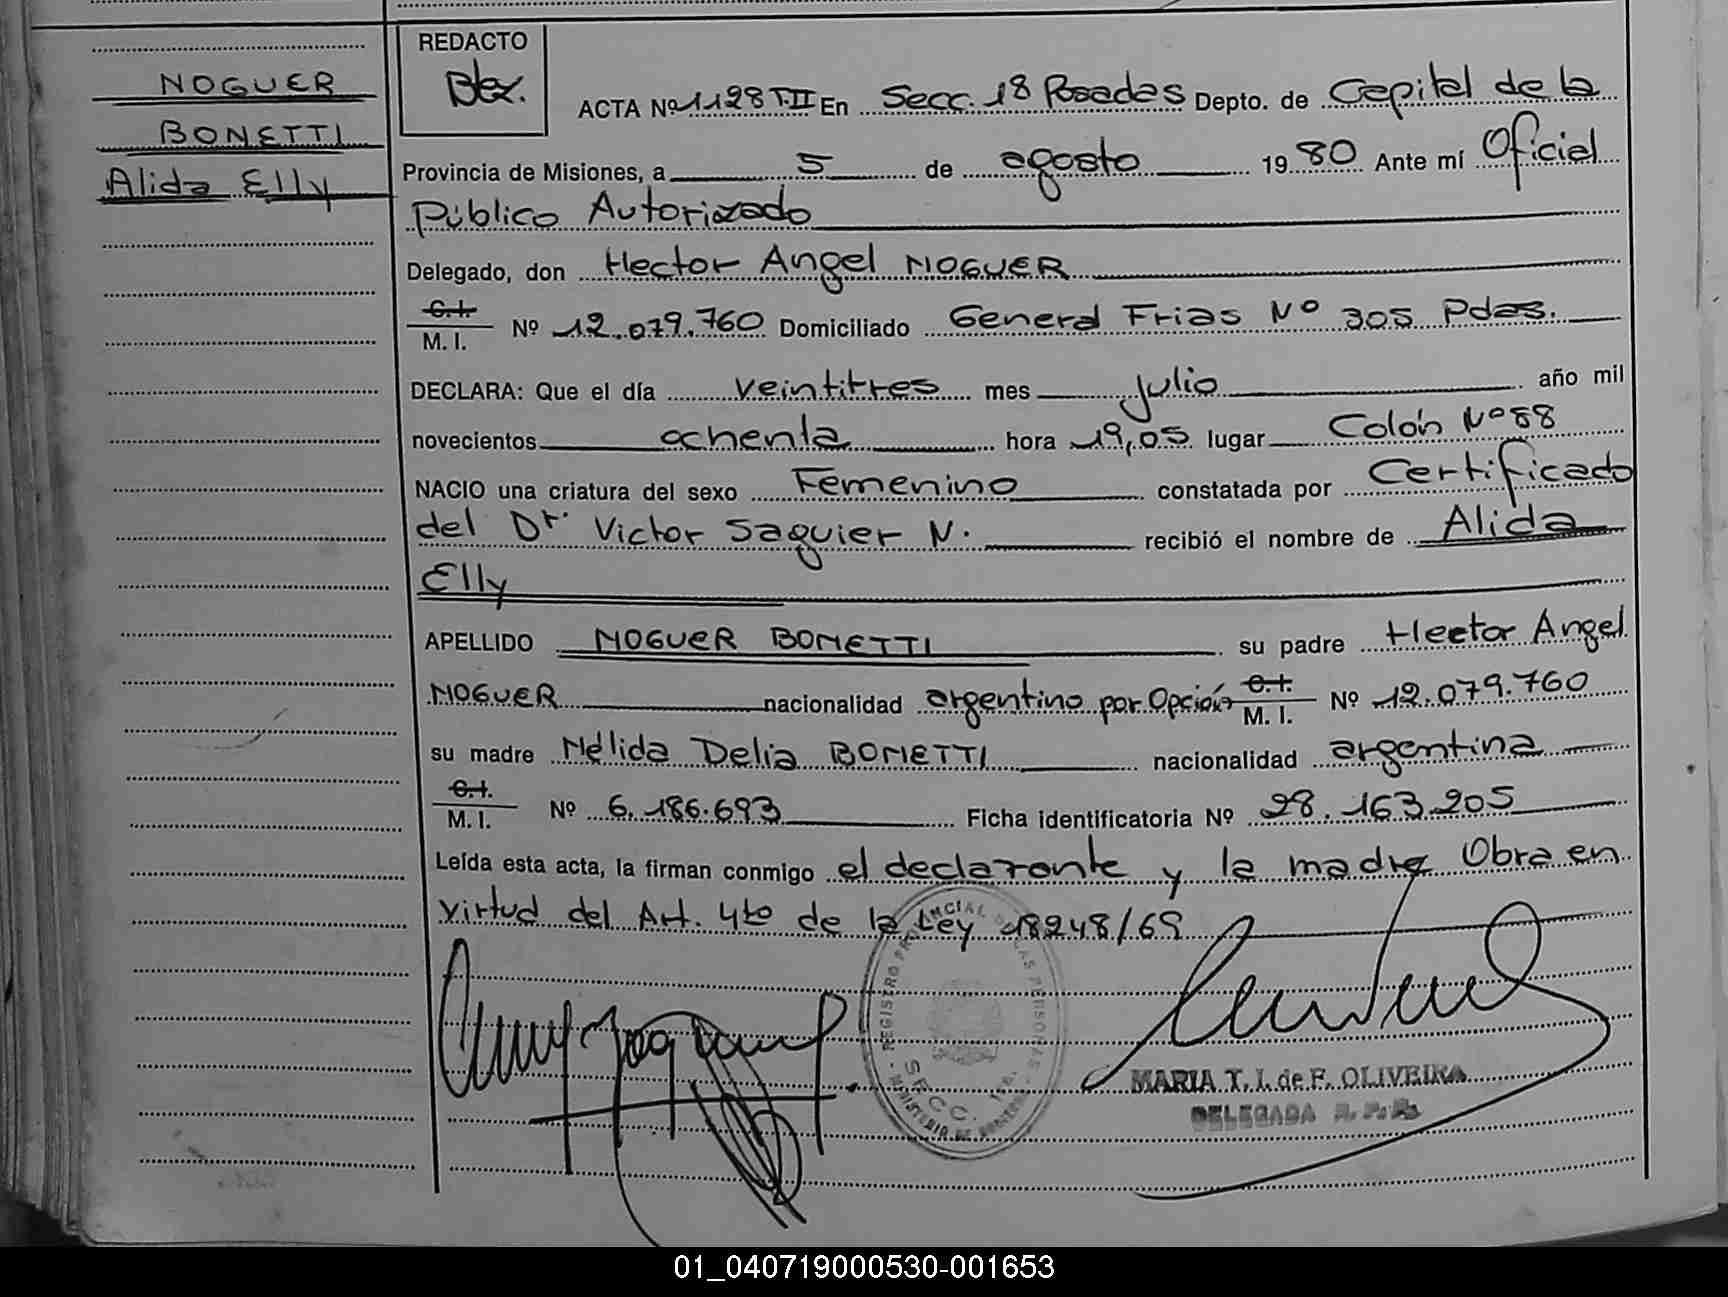 NOGUER
BONETTI
Alida Elly
REDACTO
ACTA Nº 1128 T.II En Secc. 18 Posadas Depto. de Capital de la
Provincia de Misiones, a 5 de agosto 1980 Ante mí Oficial
Público Autorizado
Delegado, don Hector Angel NOGUER
C.I.
M. I. Nº 12.079.760 Domiciliado General Frias Nº 305 Pdas.
DECLARA: Que el día veintitres mes julio año mil
novecientos ochenta hora 19,05 lugar Colón Nº 88
NACIO una criatura del sexo Femenino constatada por Certificado
del Dr. Victor Saguier N. recibió el nombre de Alida
Elly
APELLIDO NOGUER BONETTI su padre Hector Angel
NOGUER nacionalidad argentino por Opción C.I. M. I. Nº 12.079.760
su madre Nélida Delia BONETTI nacionalidad argentina
C.I.
M. I. Nº 6.186.693 Ficha identificatoria Nº 28.163.205
Leída esta acta, la firman conmigo el declarante y la madre Obra en
virtud del Art. 4to de la Ley 18248/69
REGISTRO PROVINCIAL DE LAS PERSONAS
SECC.
MARIA T. I. de F. OLIVEIRA
DELEGADA R. P. P.
01_040719000530-001653